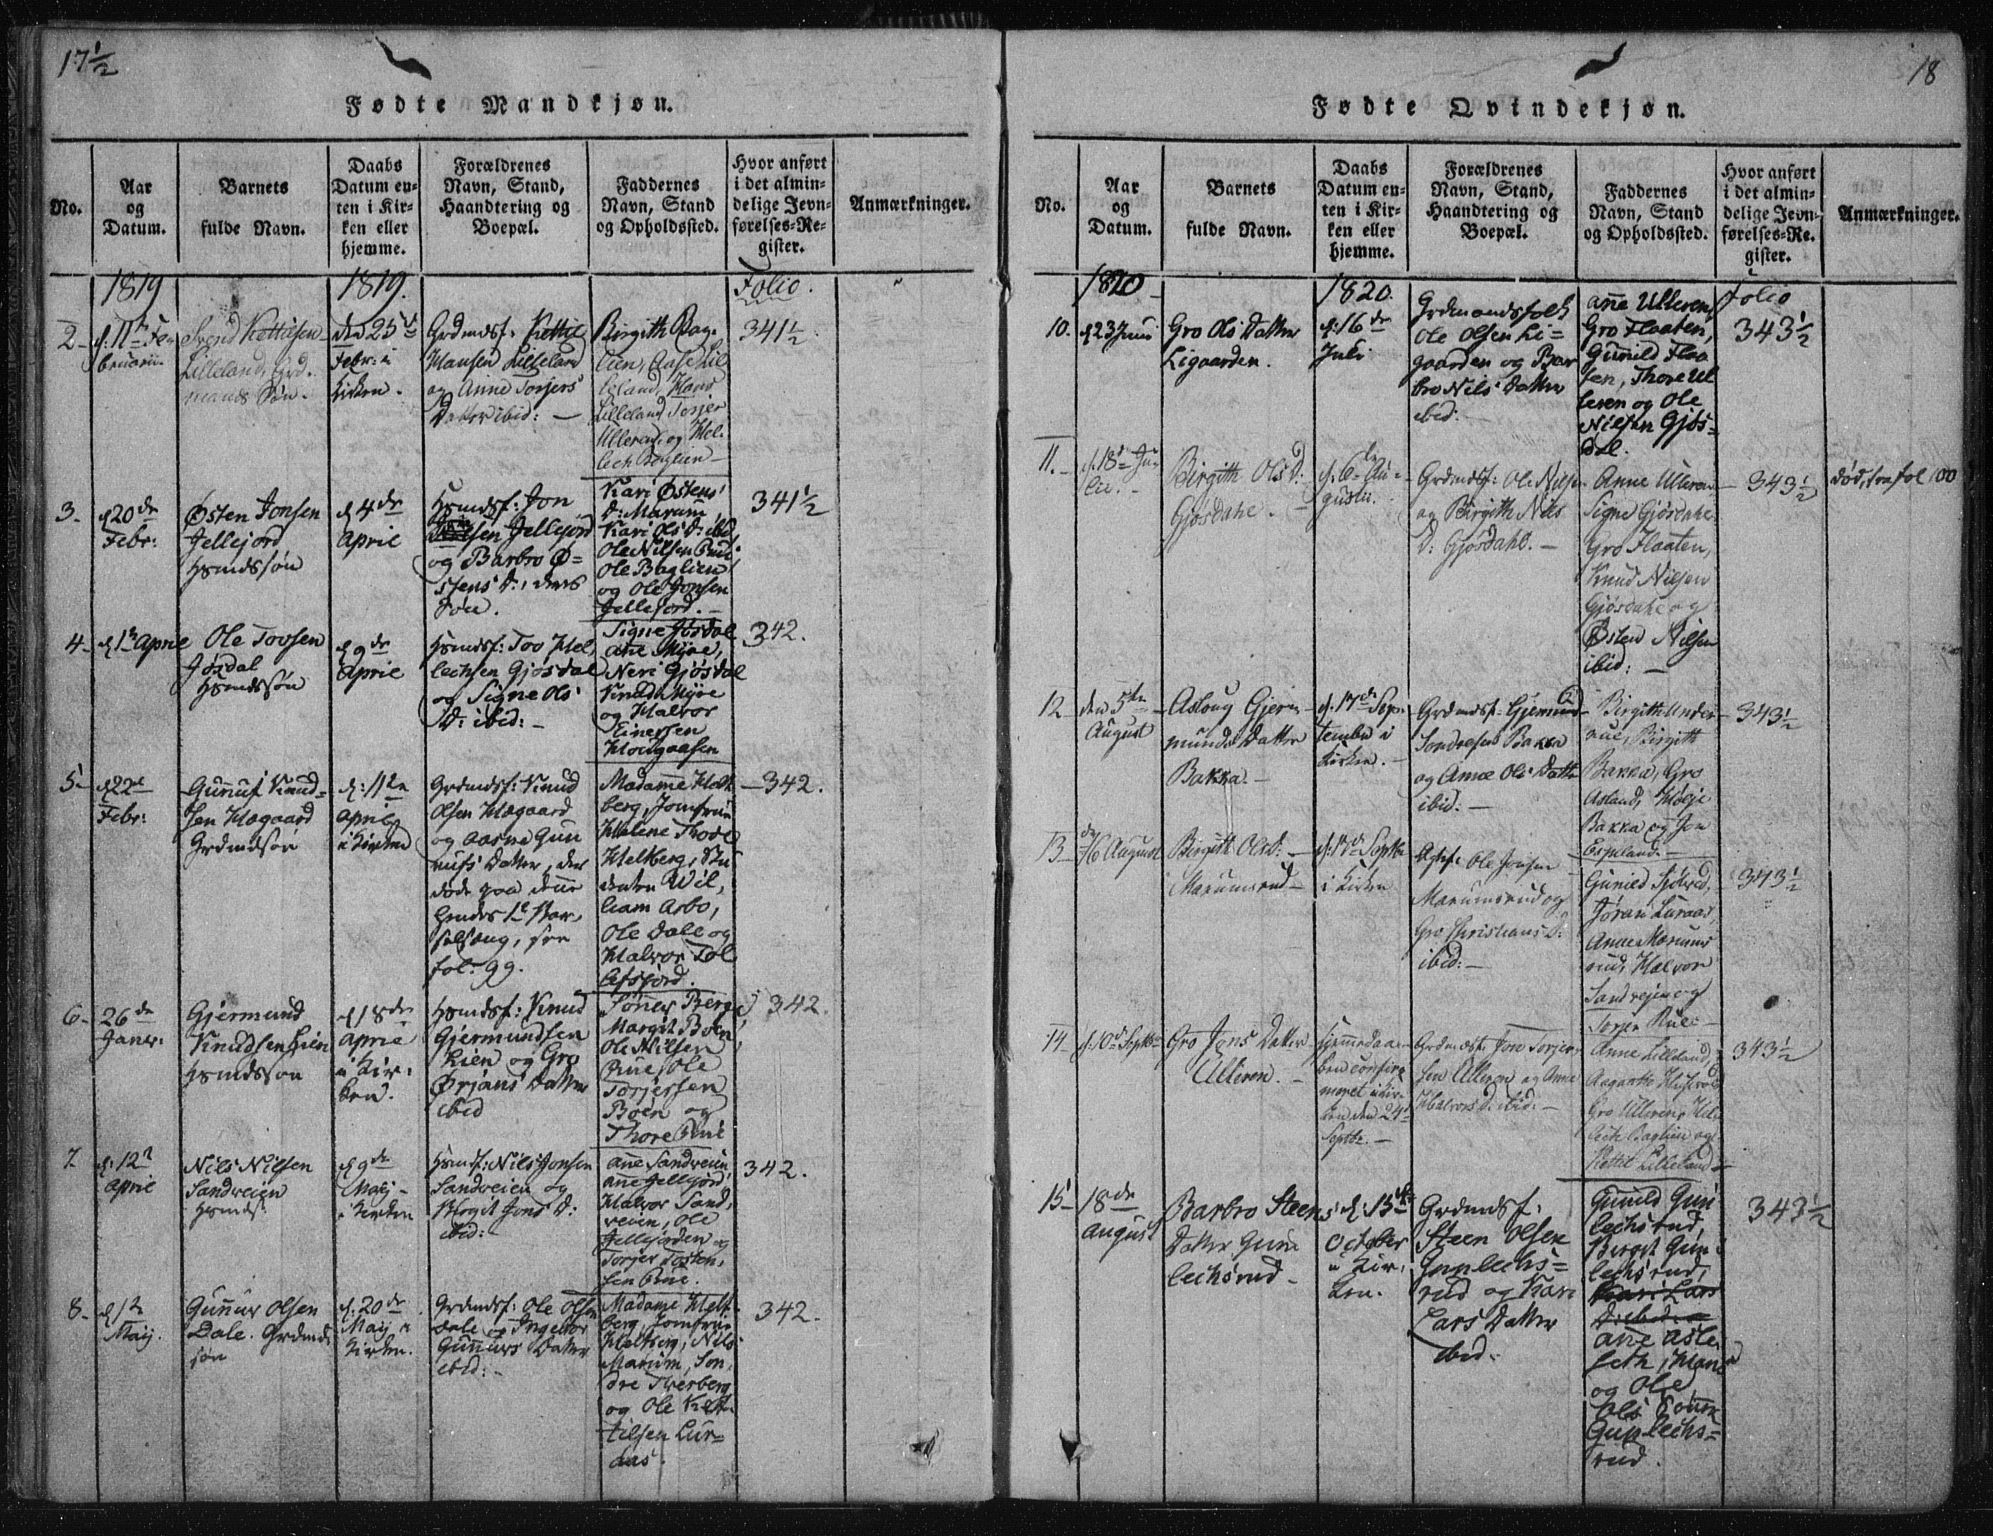 17½
Fødte Mandkjøn.
No.
Aar
og
Datum.
Barnets
fulde Navn.
Daabs
Datum en-
ten i Kir-
ken eller
hjemme.
Forældrenes
Navn, Stand,
Haandtering og
Boepæl.
Faddernes
Navn, Stand
og Opholdssted.
Hvor anført
i det almin-
delige Jevn-
førelses-Re-
gister.
Anmærkninger.
1819
1819.
Folio.
2
d: 11te Fe-
bruarii
Svend Kettilsen
Lilleland, Grd-
mands Søn.
den 25de
Febr: i
Kirken.
Grdmdsf: Kettil
Hansen Lilleland
og Anne Torjers
Datter ibid: —
Birgith Bag-
lien, Aase Lil
leland, Hans
Lilleland Torjer
Ulleren, og Hel-
lech Baglien —
341½
3.
d 20de
Febr:
Østen Jonsen
Jellejord
Hsmdssøn
d 4de
April
Hsmdsf: Jon
Jellejord
og Barbro Ø-
stens D:, deres
Søn.
Kari Østens
D: Marum,
Kari Ols D: ibid
Ole Nilsen
Ole Baglien
og Ole Jonsen
Jellejord. —
341½
4
d 1te April
Ole Tovsen
Jøsdal
Hsmdssøn
d 9de
April
Hsmdsf: Tov Hel
lechsen Gjøsdal
og Signe Ols
D: ibid: —
Signe Jøsdal
ane Myre,
Neri Gjøsdal
Knud Myre
og Halvor
Einersen
342.
5
d 22de
Febr:
Gunuf Knud-
sen Hægaard
Grdmdsøn
d: 11te
April
i Kirken
Grdmdsf: Knud
Olsen Hægaard
og Aasne Gun
nufs Datter, der
døde paa denne
hendes 1te Bar-
selseng, see
fol: 99.
Madamme Helt
berg, Jomfrue
Helene Thode
Heltberg, Stu
denten Wil,
liam Arbo,
Ole Dale og
Halvor Tol
lefsjord.
342.
6
26de
Janr:
Gjermund
Knudsen Lien
Hsmdssøn
d 18de
April
i Kir-
ken.
Hsmdsf: Knud
Gjermundsen
Lien og Gro
Ørjans Datter
ibid
Sønev Berge
Margit Boen
Ole Nilsen
Ole
Torjersen
Boen og
Thore
342.
7.
d: 12te
April
Nils Nilsen
Sandveien
Hsmds:
d 9de
Maij
i Kirken
Hsmdsf: Nils Jonsen
Sandveien og
Birgit Jons D:
ibid: —
ane Sandveien
ane Jellejord,
Halvor Sand,
veien, Ole
Jellejorden og
Torjer Tosten,
sen
342.
8.
d 1te
Maij.
Gunuv Olsen
Dale. Grdmds
søn
d: 20de
Maij i
Kirken.
Grdmdsf: Ole Olsen
Dale og Ingebor
Gunuvs Datter
ibid: —
Madame Helt
berg, Jomfrue
Heltberg, Nils
Marum, Son,
dre Tverberg
og Ole Ket
tilsen Lur-
aas.
342.
18
Fødte Qvindekjøn.
No.
Aar
og
Datum.
Barnets
fulde Navn.
Daabs
Datum en-
ten i Kir-
ken eller
hjemme.
Forældrenes
Navn, Stand,
Haandtering og
Boepæl.
Faddernes
Navn, Stand
og Opholdssted.
Hvor anført
i det almin-
delige Jevn-
førelses-Re-
gister.
Anmærkninger.
1820
1820.
Folio
10.
d 23 Juni
Gro Ols Datter
Ligaarden.
d: 16de
Juli
Grdmandsfolk
Ole Olsen Li-
gaarden og Bar
bro Nils Datter
ibid: —
ane Ulleren,
Gro Flaaten,
Gunild Flaa
ten, Thore Ul
leren og Ole
Nilsen Gjøs-
dal.
343½
11.
d: 18de Ju-
lii.
Birgith Ols D:
Gjøsdahl.
d: 6te Au-
gustii.
Grdmdsf: Ole Nilsen
og Birgith Nils
D: Gjøsdahl. —
Anne Ulleren
Signe Gjøsdahl
Gro Flaaten,
Knud Nilsen
Gjøsdahl og
Østen Nilsen
ibid: —
343½
død, see fol 100
12
den 5te
August
Aslaug Gjer-
munds Datter
Bakka. —
d. 17de Sep-
tember i
Kirken. —
Grdmdsf: Gjermund
Sondresen Bakka
og Anne Ols Datter
ibid: —
Birgith
Birgith
Bakka, Gro
Asland,
Bakka og Jon
Espeland. —
343½
13
d 16 August
Birgith Ols D: —
Marumsrud —
d: 17de Septbr
i Kirken
Ole Jonsen
Marumsrud og
Gro Christians D:
ibid: —
Gunild
Jøran Luraas,
Anne Marums
rud, Halvor
Sandvejen og
Torjer
343½
14
d. 10de Septbr
Gro Jons Datter
Ulleren. —
Hjemmedaa-
ben confir-
meret i Kir-
ken den 24de
Septbr. —
Grdmdsf: Jon Torjer-
sen Ulleren og Anne
Halvors D: ibid: —
Anne Lilleland,
Gro Ulleren, Hel
lech Baglien og
Kettil Lilleland —
343½
15
18de
August
Barbro Steens
Datter Gun
lechsrud —
d. 15de
October
i Kir,
ken.
Grdmdsf:
Steen Olsen
Gunlechs-
rud og Kari
Lars Datter
ibid: —
Gunild Gun
lechsrud,
Birgit Gun
lechsrud,
Kari Lars
D: ibid: —
ane
og Ole
Gunlechs-
rud.
343½